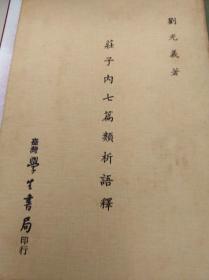 劉光義著
莊子內七篇類析語釋
臺灣學生書局印行